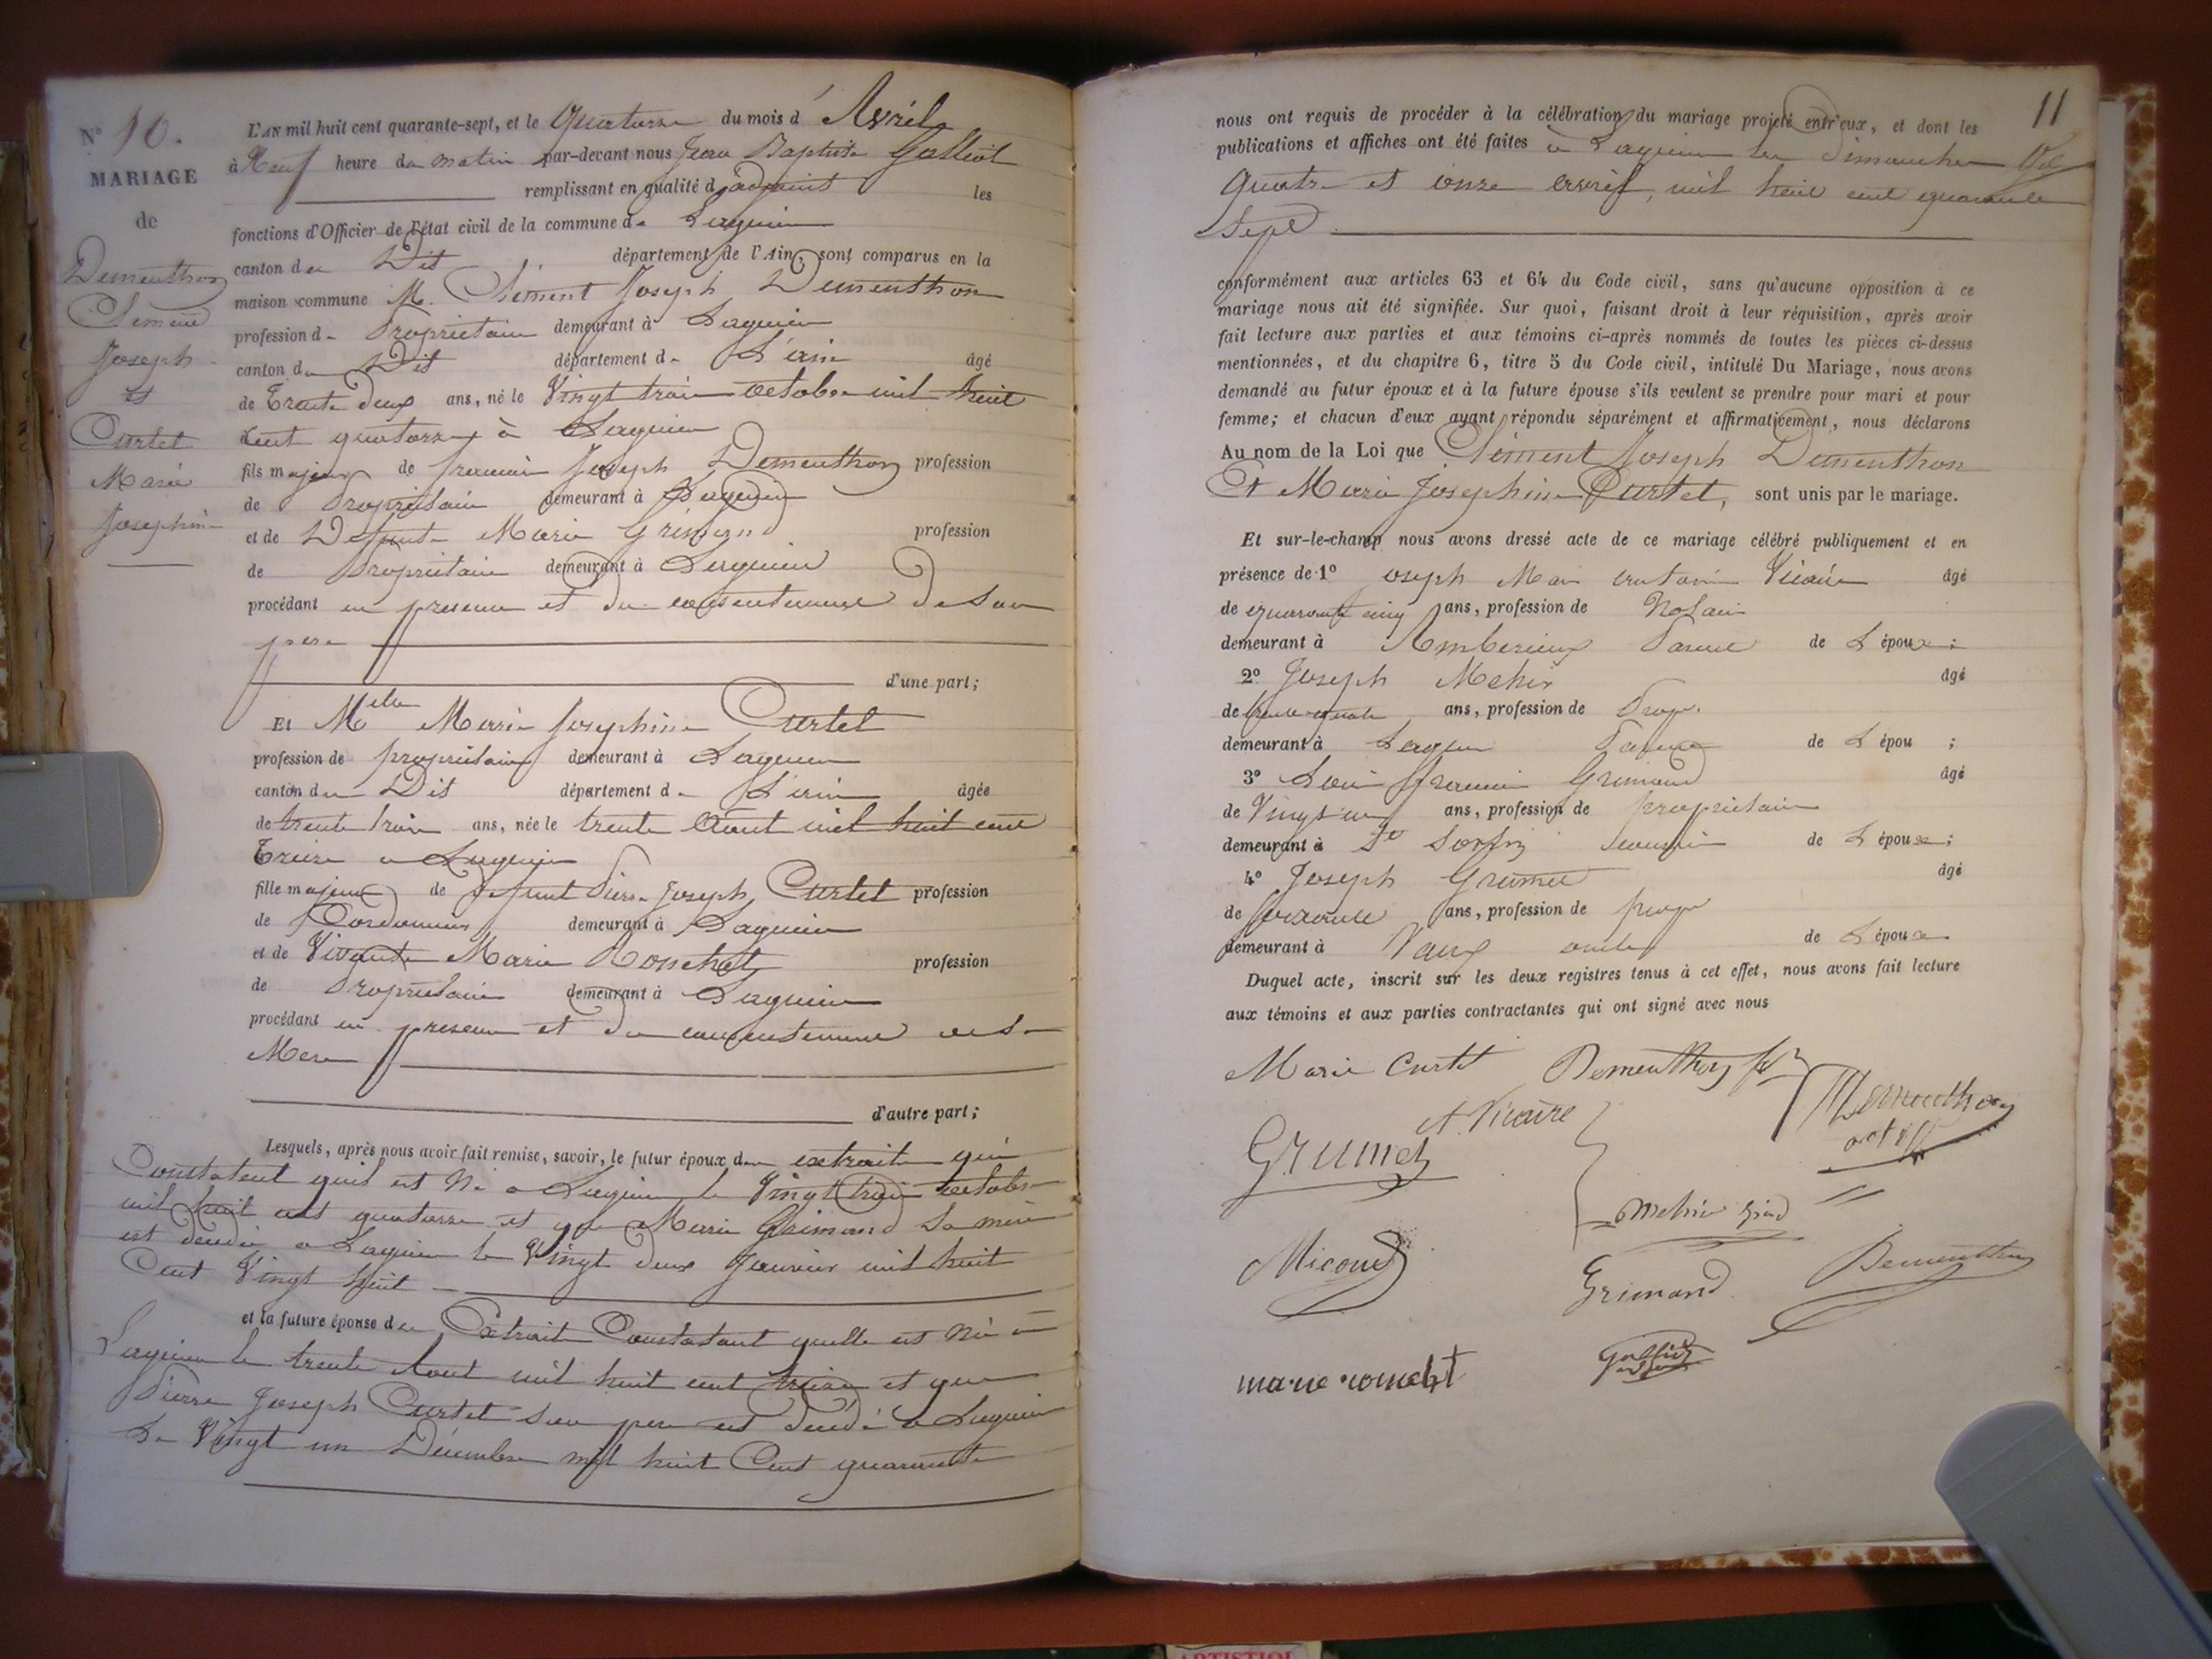 N° 10.
MARIAGE
de
Dementhon
Clément
Joseph
et
Curtet
Marie
Josephine
L'AN mil huit cent quarante-sept, et le Quatorze du mois d' Avril
à Neuf heure du matin par-devant nous Jean Baptiste Galliot
remplissant en qualité d'adjoint les
fonctions d'Officier de l'état civil de la commune de Lagnieu
canton du Dit département de l'Ain, sont comparus en la
maison commune M. Clément Joseph Dementhon
profession de Propriétaire demeurant à Lagnieu
canton du Dit département de L'ain âgé
de Trente deux ans, né le Vingt trois octobre mil huit
cent quatorze à Lagnieu
fils majeur de francois Joseph Dementhon profession
de Propriétaire demeurant à Lagnieu
et de Defunte Marie Grimand profession
de Propriétaire demeurant à Lagnieu
procédant en presence et du consentement de son
pere
d'une part;
Et Melle Marie Josephine Curtet
profession de propriétaire demeurant à Lagnieu
canton du Dit département de L'ain âgée
de trente trois ans, née le trente Aout mil huit cent
Treize a Lagnieu
fille majeure de defunt Pierre Joseph Curtet profession
de Cordonnier demeurant à Lagnieu
et de Vivante Marie Ronchet profession
de Propriétaire demeurant à Lagnieu
procédant en presence et du consentement de sa
Mere
d'autre part;
Lesquels, après nous avoir fait remise, savoir, le futur époux des extraits qui
Constatent quil est Né a Lagnieu le Vingt trois octobre
mil huit cent quatorze et que Marie Grimand Sa mère
est decedée a Lagnieu le Vingt deux Janvier mil huit
Cent Vingt huit
et la future épouse des Extrait Constatant quelle est Née à
Lagnieu le trente Aout mil huit cent treize et que
Pierre Joseph Curtet son pere est decedé a Lagnieu
Le Vingt un Décembre mil huit Cent quarante
11
nous ont requis de procéder à la célébration du mariage projeté entr'eux, et dont les
publications et affiches ont été faites à Lagnieu les dimanches
Quatre et onze avril, mil huit cent quarante
Sept
conformément aux articles 63 et 64 du Code civil, sans qu'aucune opposition à ce
mariage nous ait été signifiée. Sur quoi, faisant droit à leur réquisition, après avoir
fait lecture aux parties et aux témoins ci-après nommés de toutes les pièces ci-dessus
mentionnées, et du chapitre 6, titre 5 du Code civil, intitulé Du Mariage, nous avons
demandé au futur époux et à la future épouse s'ils veulent se prendre pour mari et pour
femme; et chacun d'eux ayant répondu séparément et affirmativement, nous déclarons
Au nom de la Loi que Clément Joseph Dementhon
Et Marie Josephine Curtet, sont unis par le mariage.
Et sur-le-champ nous avons dressé acte de ce mariage célébré publiquement et en
présence de 1° Joseph Vicaire âgé
de quarante cinq ans, profession de Notaire
demeurant à Amberieux de L'époux;
2° Joseph Mehier âgé
de trente quatre ans, profession de Prop.
demeurant à Lagnieu de L'épou ;
3° Louis francois Grimand âgé
de Vingt un ans, profession de propriétaire
demeurant à St Sorlin cousin de L'épouse;
4° Joseph Grumet âgé
de soixante ans, profession de prop
demeurant à Vaux oncle de L'épouse
Duquel acte, inscrit sur les deux registres tenus à cet effet, nous avons fait lecture
aux témoins et aux parties contractantes qui ont signé avec nous
Marie Curtet Dementhon
A. Vicaire Dementhon
Grumet
Mehier
Micoud Grimand Dementhon
marie Galliot